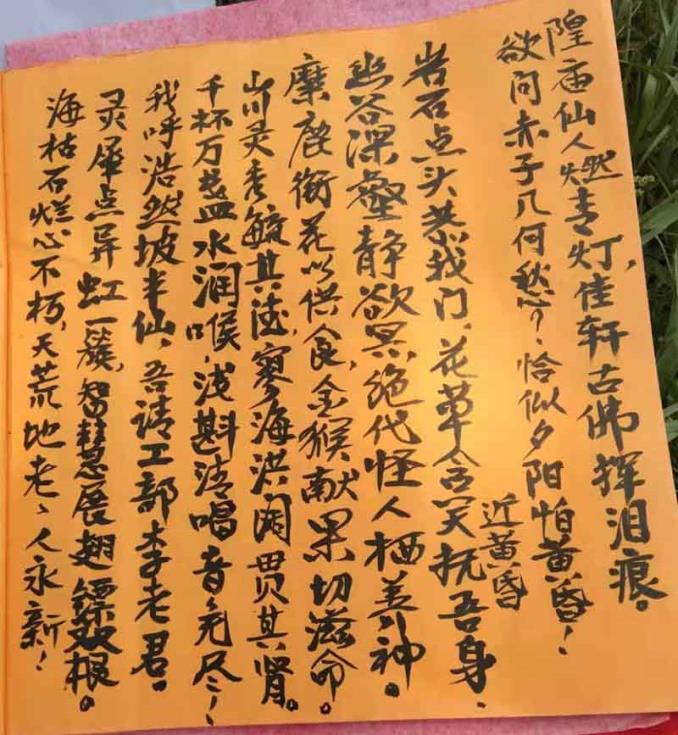 隍庙仙人燃青灯，佳轩古佛挥泪痕。
欲问赤子几何愁？恰似夕阳怕黄昏！
近黄昏
岩石点头恭我门，花草含笑抚吾身、
幽谷深壑静欲冥，绝代怪人栖美神。
麋鹿衔花以供食，金猴献果切滋命。
山川灵秀毓其德，寥海洪阔贯其肾。
千杯万盏水润喉，浅斟清唱音免尽！
我呼浩然坡半仙，吾请工部李老君。
灵犀点异虹一簇，智慧展翅镖双根。
海枯石烂心不朽，天荒地老、人永新！